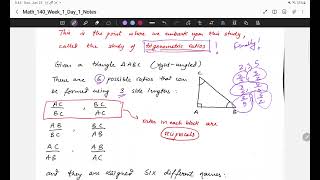 Math_140_Week_1_Day_1_Notes
This is the point where we embark upon this study,
called the study of trigonometric ratios! Finally!
Given a triangle ΔABC (right-angled)
There are 6 possible ratios that can
be formed using 3 side lengths:
C
A
B
2, 3, 5
AC/BC BC/AC
AB/BC BC/AB
AC/AB AB/AC
ratios in each block are
reciprocals
and they are assigned six different names: